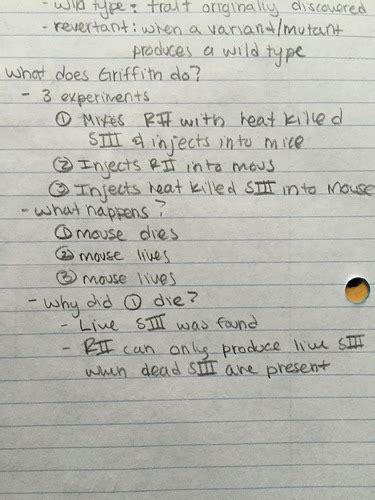 - wild type: trait originally discovered
- revertant: when a variant/mutant
produces a wild type
What does Griffith do?
- 3 experiments
① Mixes RII with heat killed
SIII & injects into mice
② Injects RII into mous
③ Injects heat killed SIII into mouse
- what happens?
① mouse dies
② mouse lives
③ mouse lives
- Why did ① die?
- Live SIII was found
- RII can only produce live SIII
when dead SIII are present